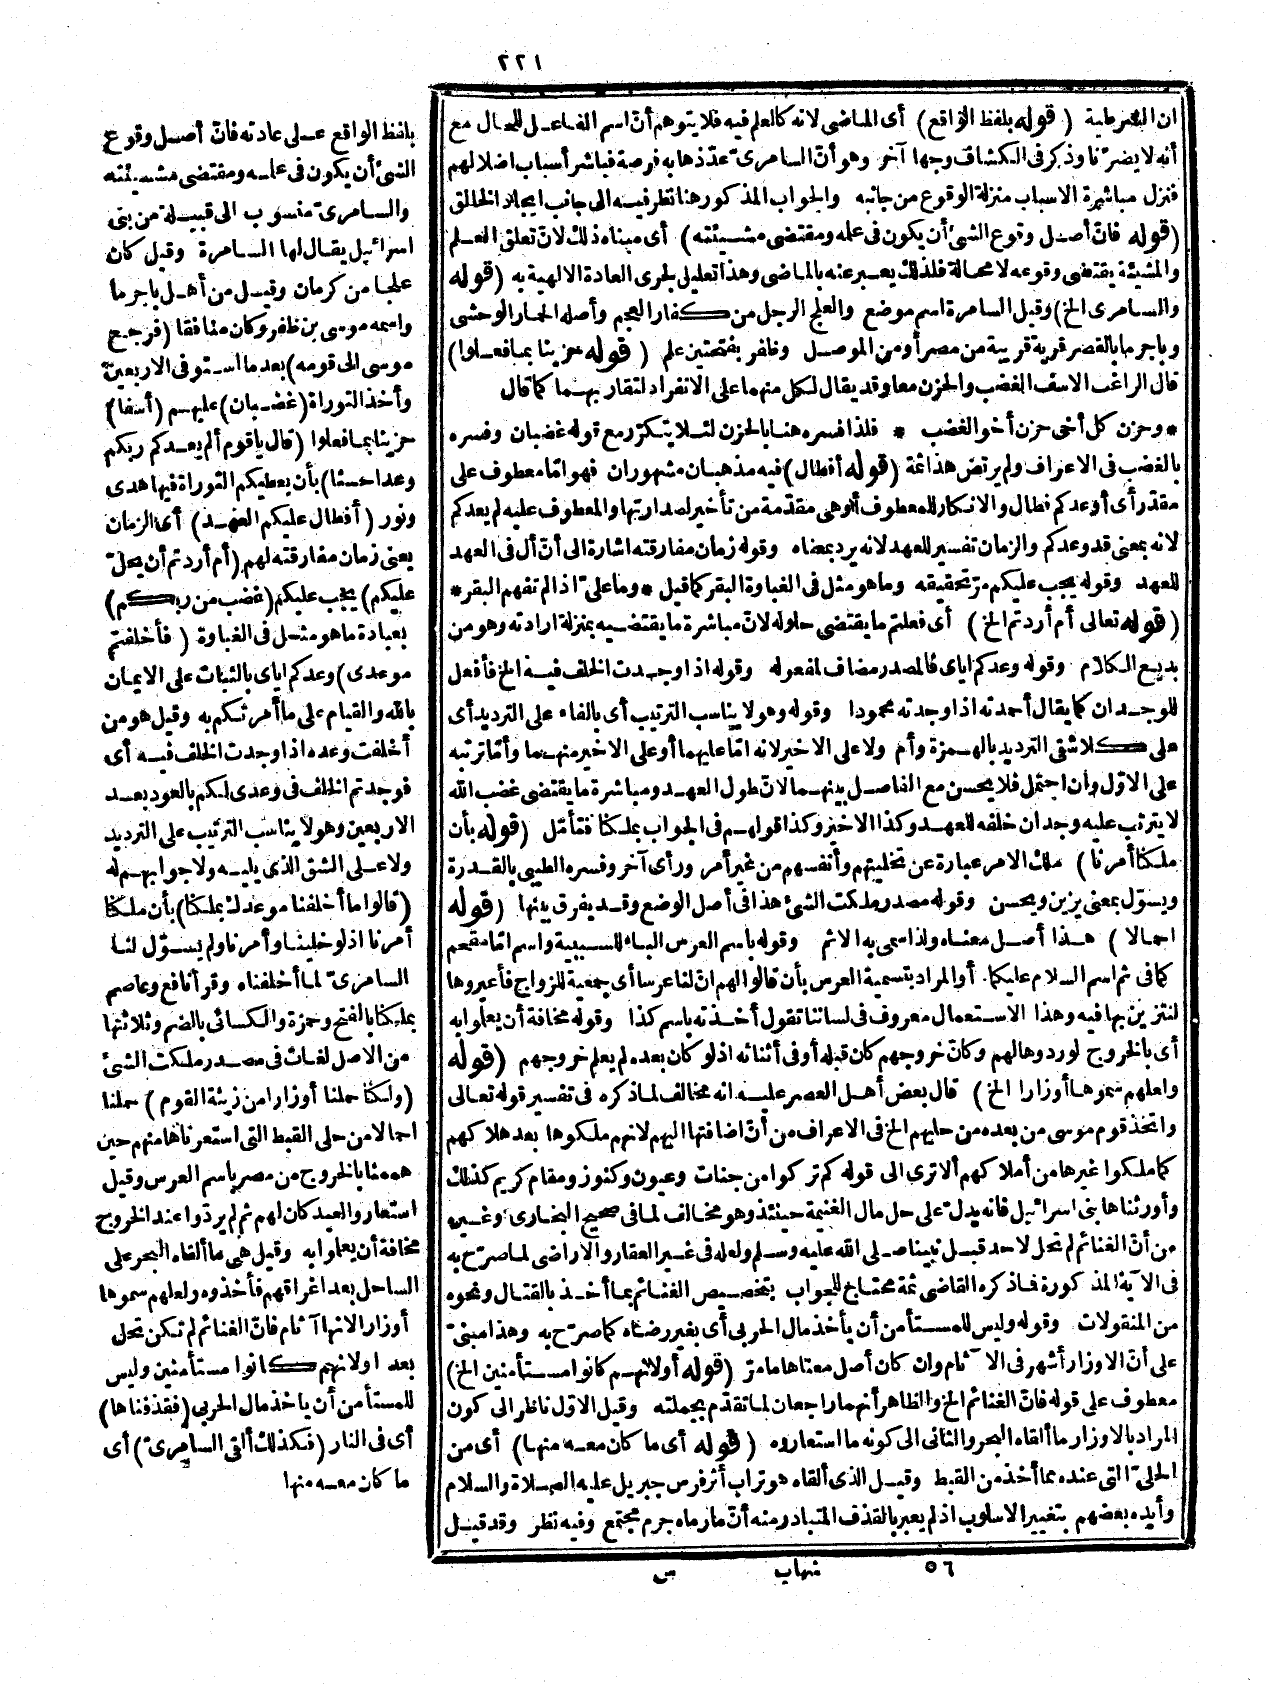 ٢٢١
ان الشرطية ( قوله بلفظ الواقع ) أى الماضى لانه كالعلم فيه فلا يتوهم أنّ اسم الفاعل للحال مع
أنه لا يضرّنا وذكر فى الكشاف وجها آخر وهو أنّ السامرىّ عدّ ذهابه فرصة فباشر أسباب اضلالهم
فنزل مباشرة الاسباب منزلة الوقوع من جانبه والجواب المذكور هنا نظر فيه الى جانب ايجاد الخالق
( قوله فانّ أصل وقوع الشئ أن يكون فى علمه ومقتضى مشيئته ) أى مبناه ذلك لانّ تعلق العلم
والمشيئة يقتضى وقوعه لا محالة فلذلك يعبر عنه بالماضى وهذا تعليل لجرى العادة الالهية به ( قوله
والسامرى الخ ) وقيل السامرة اسم موضع والعلج الرجل من كفار العجم وأصله الحمار الوحشى
وباجرما بالقصر قرية قريبة من مصر أو من الموصل وظفر بفتحتين علم ( قوله حزينا بما فعلوا )
قال الراغب الاسف الغضب والحزن معا وقد يقال لكل منهما على الانفراد لتقاربهما كما قال
* وحزن كل أخى حزن أخو الغضب * فلذا فسره هنا بالحزن لئلا يتكرّر مع قوله غضبان وفسره
بالغضب فى الاعراف ولم يرتض هذا ثمة ( قوله أفطال ) فيه مذهبان مشهوران فهو امّا معطوف على
مقدّر أى أوعدكم فطال والانكار للمعطوف أو هى مقدّمة من تأخير لصدارتها والمعطوف عليه لم يعدكم
لانه بمعنى قد وعدكم والزمان تفسير للعهد لانه يرد بمعناه وقوله زمان مفارقته اشارة الى أنّ أل فى العهد
للعهد وقوله يجب عليكم مرّ تحقيقه وما هو مثل فى الغباوة البقر كما قيل * وما علىّ اذا لم تفهم البقر *
( قوله تعالى أم أردتم الخ ) أى فعلتم ما يقتضى حلوله لانّ مباشرة ما يقتضيه بمنزلة ارادته وهو من
بديع الكلام وقوله وعدكم اياى فالمصدر مضاف لمفعوله وقوله اذا وجدت الخلف فيه الخ فأفعل
للوجدان كما يقال أحمدته اذا وجدته محمودا وقوله وهو لا يناسب الترتيب أى بالفاء على الترديد أى
على كلا شقى الترديد بالهمزة وأم ولا على الاخير لانه امّا عليهما أو على الاخير منهما وأمّا ترتبه
على الاوّل وان احتمل فلا يحسن مع الفاصل بينهما لانّ طول العهد ومباشرة ما يقتضى غضب الله
لا يترتب عليه وجدان خلفه للعهد وكذا الاخير وكذا قولهم فى الجواب بملكنا فتأمّل ( قوله بأن
ملكنا أمرنا ) ملك الامر عبارة عن تخليتهم وأنفسهم من غير أمر ورأى آخر وفسره الطيبى بالقدرة
ويسوّل بمعنى يزين ويحسن وقوله مصدر ملكت الشئ هذا فى أصل الوضع وقد يفرق بينها ( قوله
احمالا ) هذا أصل معناه ولذا سمى به الاثم وقوله باسم العرس الباء للسببية واسم امّا مقحم
كما فى ثم اسم السلام عليكما أو المراد بتسمية العرس بأن قالوا لهم انّ لنا عرسا أى جمعية للزواج فأعيروها
لنتزين بها فيه وهذا الاستعمال معروف فى لساننا تقول أخذته باسم كذا وقوله مخافة أن يعلوا به
أى بالخروج لو ردوها لهم وكانّ خروجهم كان قبله أو فى أثنائه اذ لو كان بعده لم يعلم خروجهم ( قوله
ولعلهم سموها أوزارا الخ ) قال بعض أهل العصر عليه انه مخالف لما ذكره فى تفسير قوله تعالى
واتخذ قوم موسى من بعده من حليهم الخ فى الاعراف من أنّ اضافتها اليهم لانهم ملكوها بعد هلاكهم
كما ملكوا غيرها من أملاكهم ألا ترى الى قوله كم تركوا من جنات وعيون وكنوز ومقام كريم كذلك
وأورثناها بنى اسرائيل فانه يدلّ على حل مال الغنيمة حينئذ وهو مخالف لما فى صحيح البخارى وغيره
من أنّ الغنائم لم تحل لاحد قبل نبينا صلى الله عليه وسلم ولعله فى غير العقار والاراضى لما صرّح به
فى الآية المذكورة فما ذكره القاضى ثمة محتاج للجواب بتخصيص الغنائم بما أخذ بالقتال ونحوه
من المنقولات وقوله وليس للمستأمن أن يأخذ مال الحربى أى بغير رضاه كما صرّح به وهذا مبنىّ
على أنّ الاوزار أشهر فى الآثام وان كان أصل معناها ما مرّ ( قوله أو لانهم كانوا مستأمنين الخ )
معطوف على قوله فانّ الغنائم الخ والظاهر أنهما راجعان لما تقدّم بجملته وقيل الاوّل ناظر الى كون
المراد بالاوزار ما ألقاه البحر والثانى الى كونه ما استعاروه ( قوله أى ما كان معه منها ) أى من
الحلىّ التى عنده مما أخذ من القبط وقيل الذى ألقاه هو تراب أثر فرس جبريل عليه الصلاة والسلام
وأيده بعضهم بتغيير الاسلوب اذ لم يعبر بالقذف المتبادر منه أنّ ما رماه جرم مجتمع وفيه نظر وقد قيل
٥٦ شهاب س
بلفظ الواقع على عادته فانّ أصل وقوع
الشئ أن يكون فى علمه ومقتضى مشيئته
والسامرىّ منسوب الى قبيلة من بنى
اسرائيل يقال لها السامرة وقيل كان
علجا من كرمان وقيل من أهل باجرما
واسمه موسى بن ظفر وكان منافقا ( فرجع
موسى الى قومه ) بعد ما استوفى الاربعين
وأخذ التوراة ( غضبان ) عليهم ( أسفا )
حزينا بما فعلوا ( قال يا قوم ألم يعدكم ربكم
وعدا حسنا ) بأن يعطيكم التوراة فيها هدى
ونور ( أفطال عليكم العهد ) أى الزمان
يعنى زمان مفارقته لهم ( أم أردتم أن يحلّ
عليكم ) يجب عليكم ( غضب من ربكم )
بعبادة ما هو مثل فى الغباوة ( فأخلفتم
موعدى ) وعدكم اياى بالثبات على الايمان
بالله والقيام على ما أمرتكم به وقيل هو من
أخلفت وعده اذا وجدت الخلف فيه أى
فوجدتم الخلف فى وعدى لكم بالعود بعد
الاربعين وهو لا يناسب الترتيب على الترديد
ولا على الشق الذى يليه ولا جوابهم له
( قالوا ما أخلفنا موعدك بملكنا ) بأن ملكنا
أمرنا اذ لو خلينا وأمرنا ولم يسوّل لنا
السامرىّ لما أخلفناه وقرأ نافع وعاصم
بملكنا بالفتح وحمزة والكسائى بالضم وثلاثتها
من الاصل لغات فى مصدر ملكت الشئ
( ولكنا حملنا أوزارا من زينة القوم ) حملنا
احمالا من حلى القبط التى استعرناها منهم حين
هممنا بالخروج من مصر باسم العرس وقيل
استعاروا لعيد كان لهم ثم لم يردّوا عند الخروج
مخافة أن يعلوا به وقيل هى ما ألقاه البحر على
الساحل بعد اغراقهم فأخذوه ولعلهم سموها
أوزارا لانها آثام فانّ الغنائم لم تكن تحل
بعد او لانهم كانوا مستأمنين وليس
للمستأمن أن يأخذ مال الحربى ( فقذفناها )
أى فى النار ( فكذلك ألقى السامرىّ ) أى
ما كان معه منها